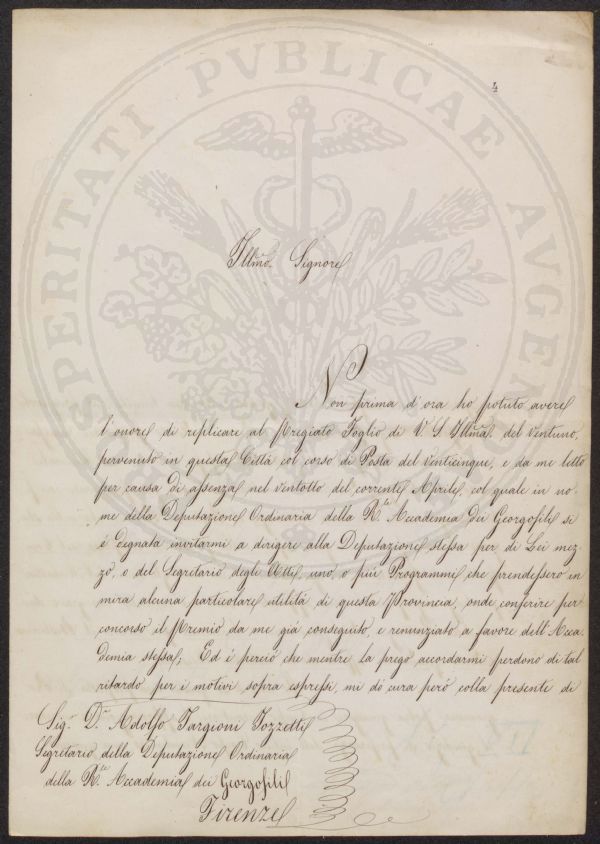 PROSPERITATI PVBLICAE AVGENDAE
4
Illmo. Signore
Non prima d'ora ho potuto avere
l'onore di replicare al Pregiato Foglio di V. S. Illma. del ventuno,
pervenuto in questa Città col corso di Posta del venticinque, e da me letto
per causa di assenza nel ventotto del corrente Aprile, col quale in no-
me della Deputazione Ordinaria della R.le Accademia dei Georgofili si
è degnata invitarmi a dirigere alla Deputazione stessa per di Lei mez-
zo, o del Segretario degli Atti, uno, o più Programmi che prendessero in
mira alcuna particolare utilità di questa Provincia, onde conferire per
concorso il Premio da me già conseguito, e renunziato a favore dell'Acca-
demia stessa; Ed è perciò che mentre La prego accordarmi perdono di tal
ritardo per i motivi sopra espressi, mi dò cura però colla presente di
Sig.r D.r Adolfo Targioni Tozzetti
Segretario della Deputazione Ordinaria
della R.le Accademia dei Georgofili
Firenze